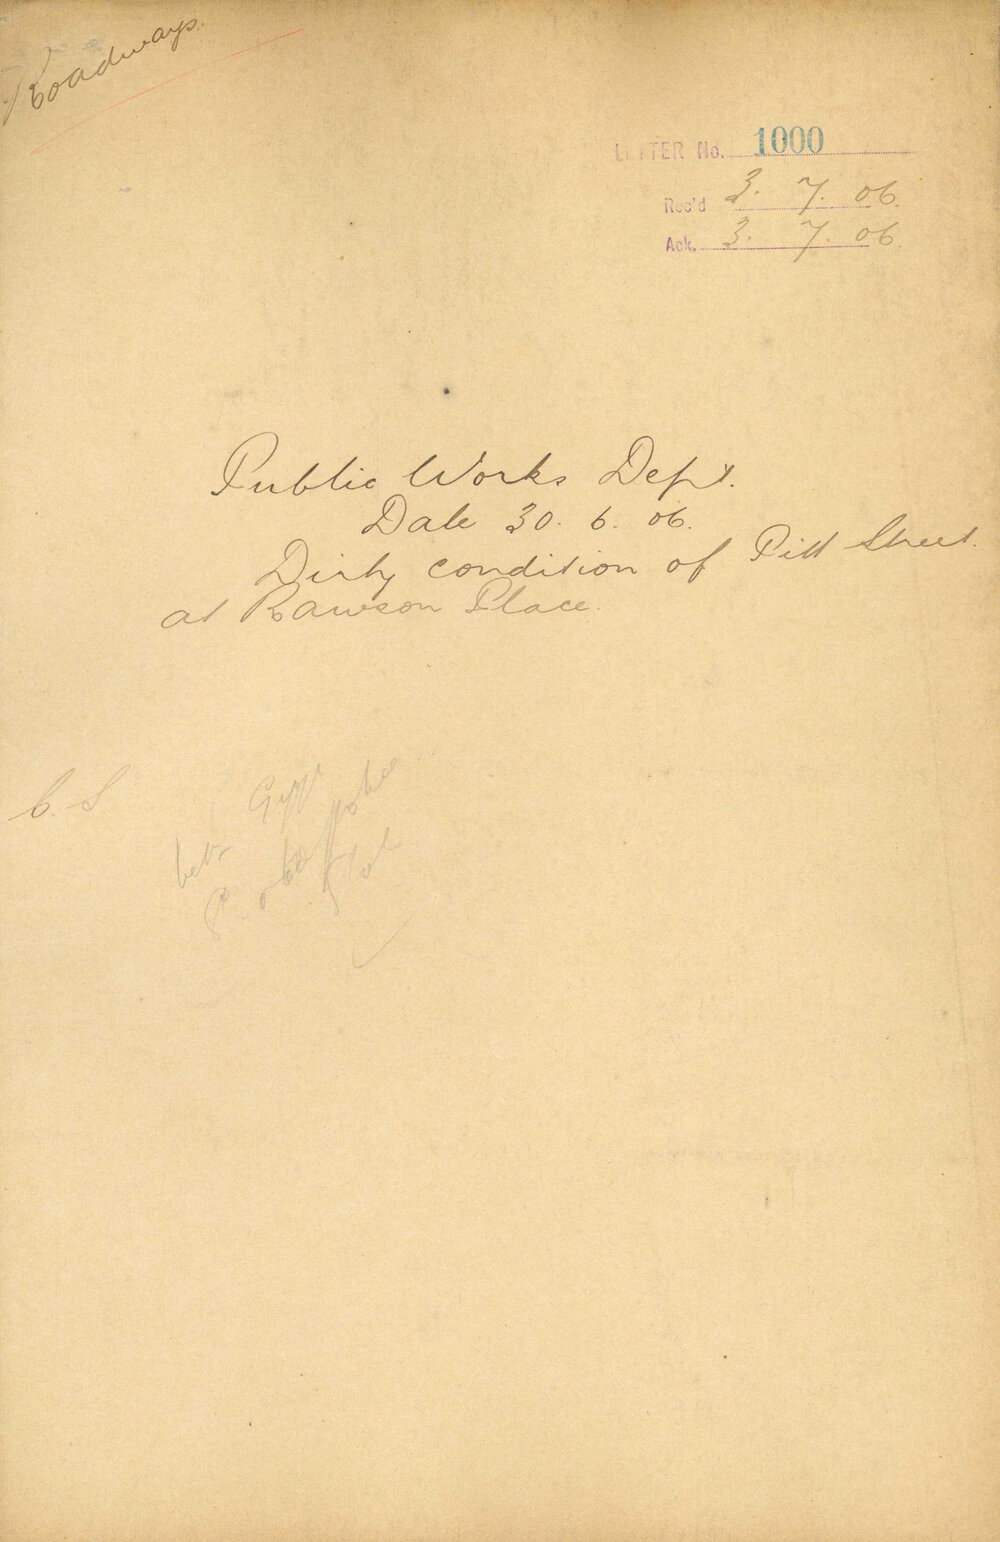 Roadways.
LETTER No. 1000
Rec'd 3. 7. 06.
Ack. 3. 7. 06.
Public Works Dept.
Date 30. 6. 06.
Dirty condition of Pitt Street
at Rawson Place.
C. S.